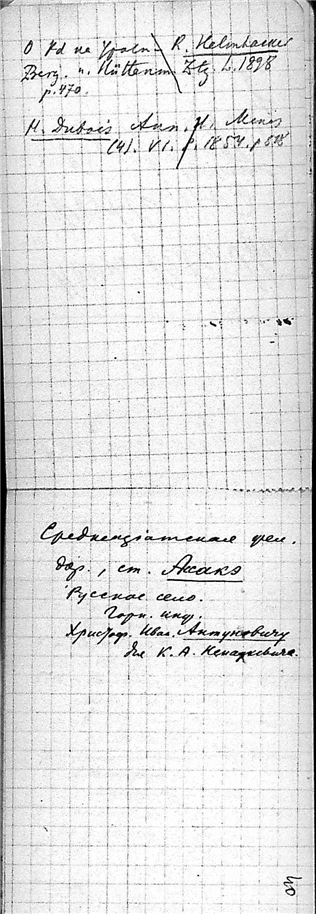 О Pd на Урале – R. Helmhacker
Berg. u. Hüttenm. Ztg. L. 1898
p. 470.
H. Dubois Ann. d. Mines
(4). VI. P. 1854. p 518
Среднеазіатская жел.
дор., ст. Асакэ
Русское село.
Горн. инж.
Христоф. Иван. Антуновичу
для К. А. Ненадкевича.